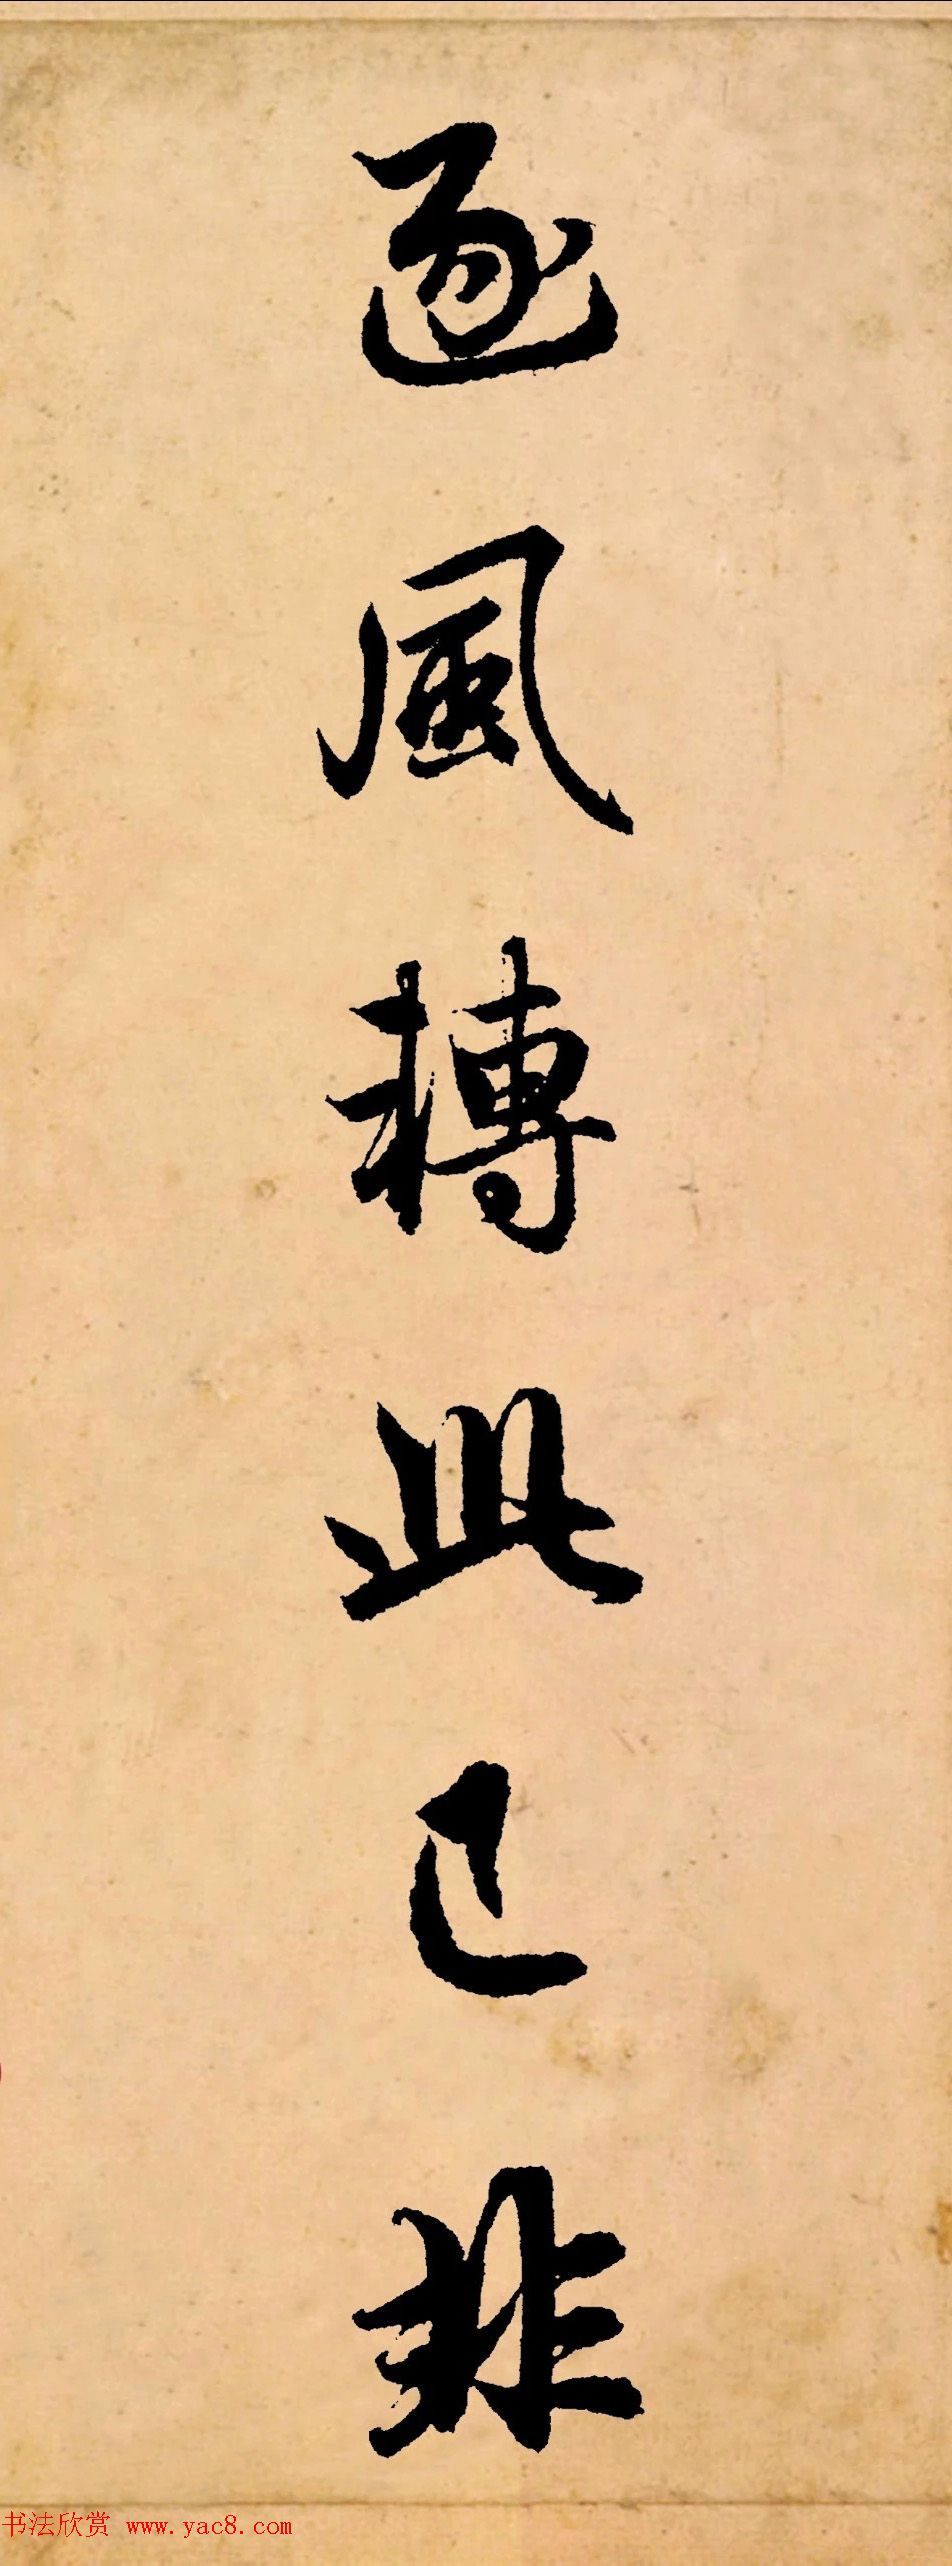 逐風轉此已非
书法欣赏 www.yac8.com